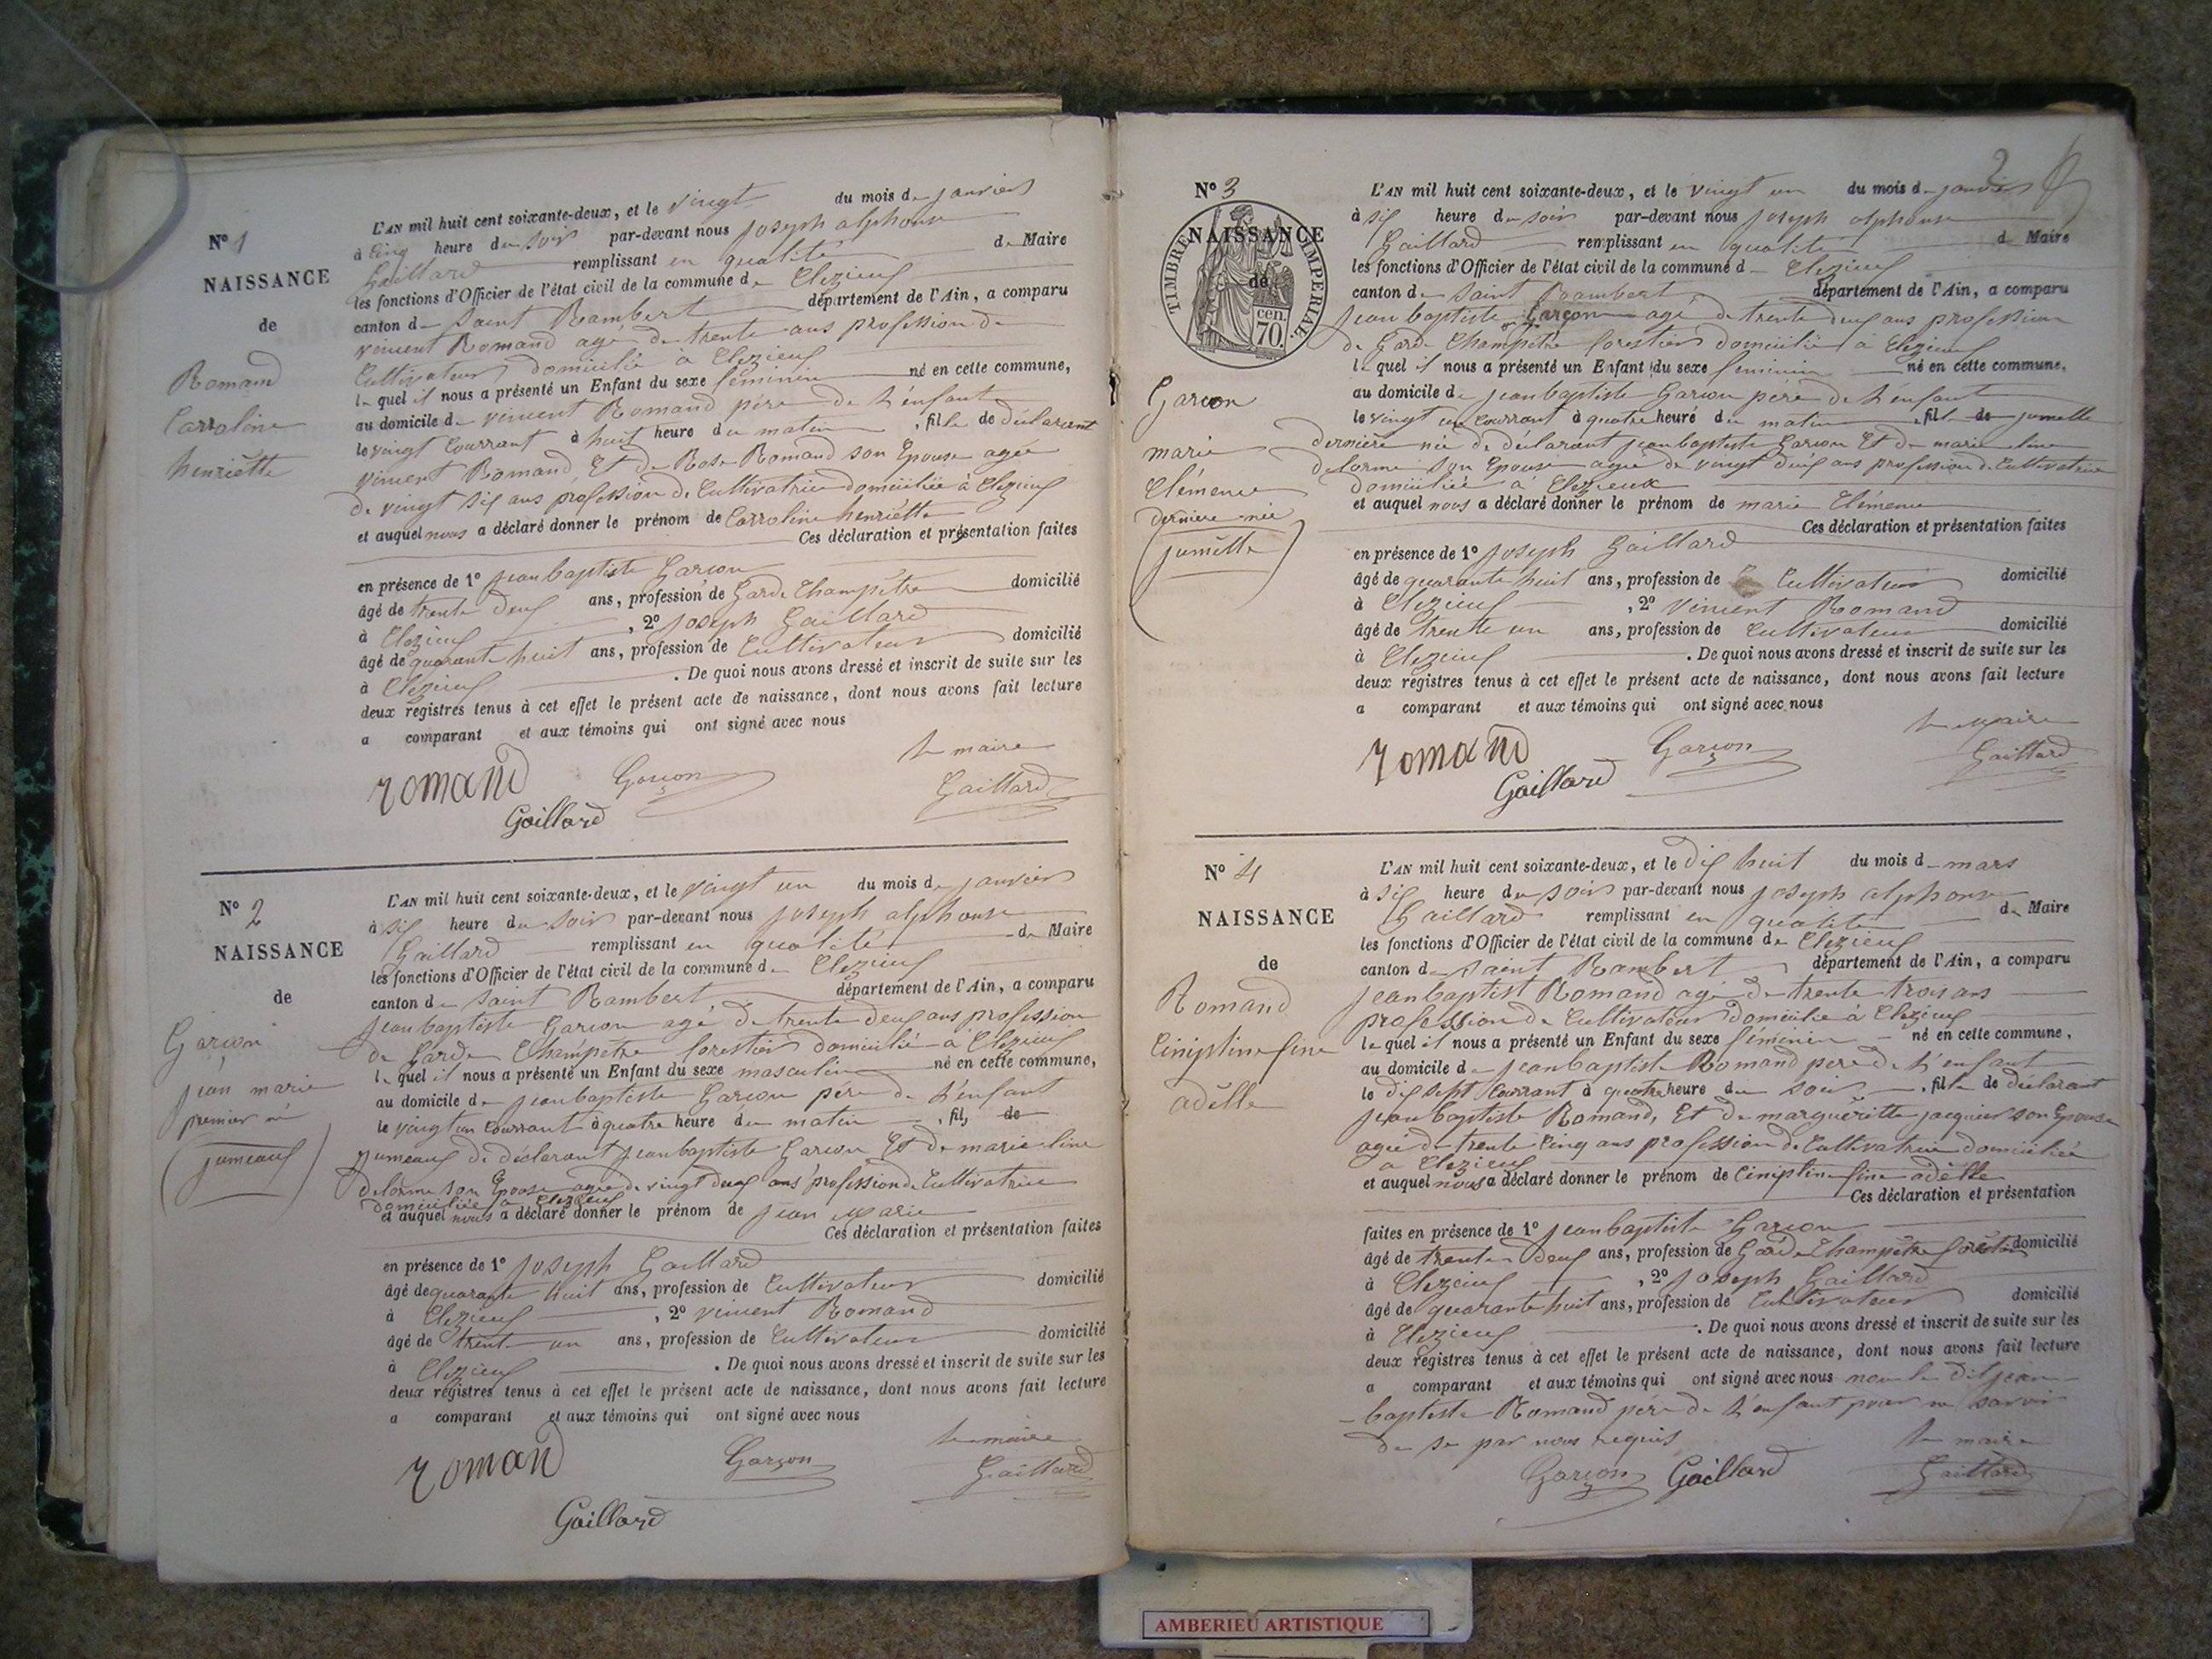 N° 1
NAISSANCE
de
Romand
Carroline
henriette
L'AN mil huit cent soixante-deux, et le vingt du mois de janvier
à Cinq heure du soir par-devant nous joseph alphonse
Gaillard remplissant en qualité de Maire
les fonctions d'Officier de l'état civil de la commune de Clezieux
canton de saint Rambert département de l'Ain, a comparu
vincent Romand agé de trente ans profession de
Cultivateur domicilié a Clezieux
le quel il nous a présenté un Enfant du sexe féminin né en cette commune,
au domicile de vincent Romand père de L'enfant
le vingt Courrant à huit heure du matin, fille de déclarant
vincent Romand Et de Rose Romand son Epouse agée
de vingt six ans profession de Cultivatrice domiciliée à Clezieux
et auquel nous a déclaré donner le prénom de Carroline henriette
Ces déclaration et présentation faites
en présence de 1° jean baptiste Garcon
âgé de trente deux ans, profession de Garde Champêtre domicilié
à Clezieux, 2° joseph Gaillard
âgé de quarante huit ans, profession de Cultivateur domicilié
à Clezieux. De quoi nous avons dressé et inscrit de suite sur les
deux registres tenus à cet effet le présent acte de naissance, dont nous avons fait lecture
a comparant et aux témoins qui ont signé avec nous
le maire
romand Garçon Gaillard
Gaillard
N° 2
NAISSANCE
de
Garçon
jean marie
premier né
(jumeaux)
L'AN mil huit cent soixante-deux, et le vingt un du mois de janvier
à six heure du soir par-devant nous joseph alphonse
Gaillard remplissant en qualité de Maire
les fonctions d'Officier de l'état civil de la commune de Clezieux
canton de saint Rambert département de l'Ain, a comparu
jean baptiste Garcon agé de trente deux ans profession
de Garde Champetre forestier domicilié à Clezieux
le quel il nous a présenté un Enfant du sexe masculin né en cette commune,
au domicile de jean baptiste Garcon père de L'enfant
le vingt un Courrant à quatre heure du matin, fils de
jumeaux de déclarant jean baptiste Garcon Et de marie line
delorme son Epouse agée de vingt deux ans profession de Cultivatrice
domiciliée a Clezieux
et auquel nous a déclaré donner le prénom de jean marie
Ces déclaration et présentation faites
en présence de 1° joseph Gaillard
âgé de quarante huit ans, profession de Cultivateur domicilié
à Clezieux, 2° vincent Romand
âgé de trent un ans, profession de Cultivateur domicilié
à Clezieux. De quoi nous avons dressé et inscrit de suite sur les
deux registres tenus à cet effet le présent acte de naissance, dont nous avons fait lecture
a comparant et aux témoins qui ont signé avec nous
le maire
romand Garçon Gaillard
Gaillard
2
N° 3
NAISSANCE
de
TIMBRE IMPERIAL
70 cen.
Garcon
marie
Clémence
dernière née
(jumelle)
L'AN mil huit cent soixante-deux, et le vingt un du mois de janvier
à six heure du soir par-devant nous joseph alphonse
Gaillard remplissant en qualité de Maire
les fonctions d'Officier de l'état civil de la commune de Clezieux
canton de saint Rambert département de l'Ain, a comparu
jean baptiste Garçon agé de trente deux ans profession
de Garde Champêtre forestier domicilié à Clezieux
le quel il nous a présenté un Enfant du sexe feminin né en cette commune,
au domicile de jean baptiste Garcon père de L'enfant
le vingt un Courrant à quatre heure du matin, fille de jumelle
dernière née de déclarant jean baptiste Garcon Et de marie line
delorme son Epouse agée de vingt deux ans profession de Cultivatrice
domiciliée à Clezieux
et auquel nous a déclaré donner le prénom de marie Clémence
Ces déclaration et présentation faites
en présence de 1° joseph Gaillard
âgé de quarante huit ans, profession de Cultivateur domicilié
à Clezieux, 2° vincent Romand
âgé de trente un ans, profession de Cultivateur domicilié
à Clezieux. De quoi nous avons dressé et inscrit de suite sur les
deux registres tenus à cet effet le présent acte de naissance, dont nous avons fait lecture
a comparant et aux témoins qui ont signé avec nous
le maire
romand Garçon Gaillard
Gaillard
N° 4
NAISSANCE
de
Romand
adèlle
L'AN mil huit cent soixante-deux, et le dix huit du mois de mars
à six heure du soir par-devant nous joseph alphonse
Gaillard remplissant en qualité de Maire
les fonctions d'Officier de l'état civil de la commune de Clezieux
canton de saint Rambert département de l'Ain, a comparu
jean baptist Romand agé de trente trois ans
profession de Cultivateur domicilié à Clezieux
le quel il nous a présenté un Enfant du sexe féminin né en cette commune,
au domicile de jean baptiste Romand père de L'enfant
le dix sept Courrant à quatre heure du soir, fille de déclarant
jean baptiste Romand, Et de marguéritte jacquier son Epouse
agée de trente Cinq ans profession de Cultivatrice domiciliée
a Clezieux
et auquel nous a déclaré donner le prénom de adèlle
Ces déclaration et présentation
faites en présence de 1° jean baptiste Garcon
âgé de trente deux ans, profession de Garde Champêtre forestier domicilié
à Clezieux, 2° joseph Gaillard
âgé de quarante huit ans, profession de Cultivateur domicilié
à Clezieux. De quoi nous avons dressé et inscrit de suite sur les
deux registres tenus à cet effet le présent acte de naissance, dont nous avons fait lecture
a comparant et aux témoins qui ont signé avec nous non le dit jean
baptiste Romand père de L'enfant pour ne savoir
de se par nous requis
le maire
Garçon Gaillard Gaillard
AMBERIEU ARTISTIQUE